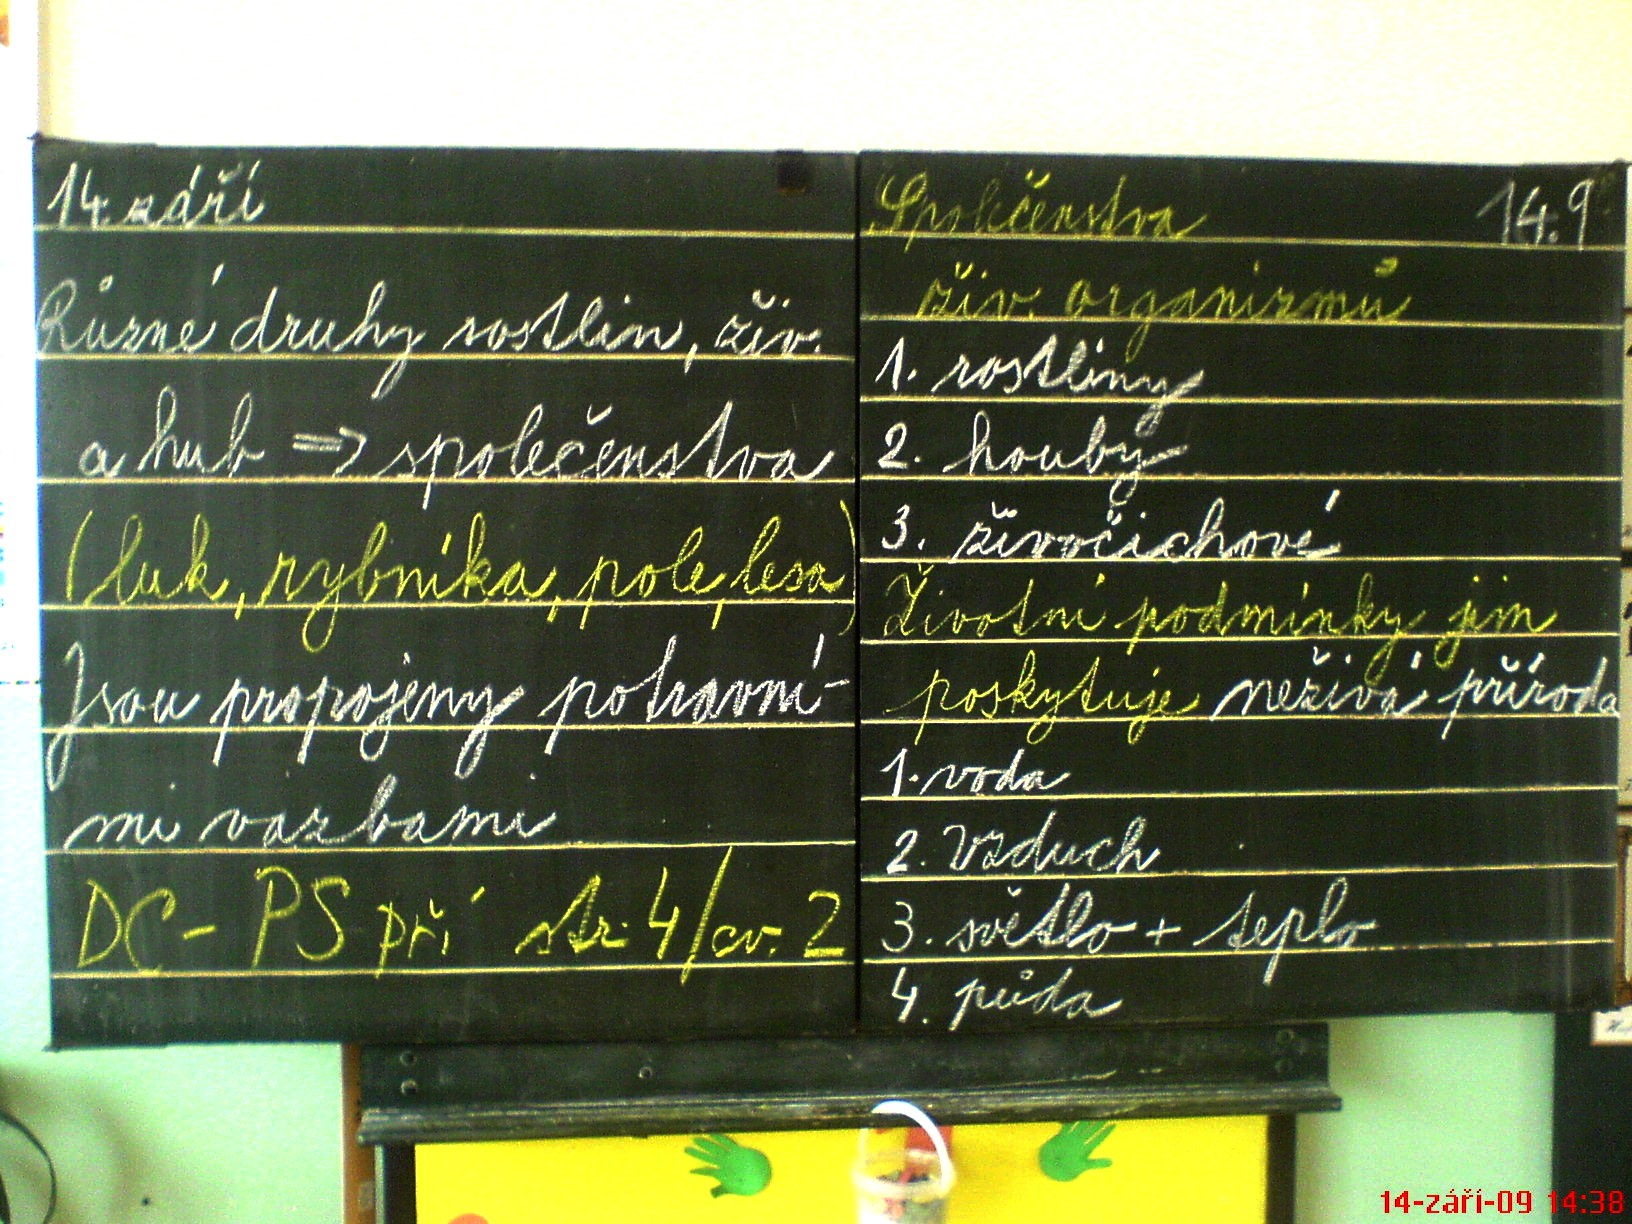 14. září
Různé druhy rostlin, živ.
a hub => společenstva
(luk, rybníka, pole, lesa)
Jsou propojeny potravní-
mi vazbami
DC - PS pří str. 4/cv. 2
Společenstva 14.9
živ. organizmů
1. rostliny
2. houby
3. živočichové
Životní podmínky jim
poskytuje neživá příroda
1. voda
2. vzduch
3. světlo + teplo
4. půda
14-září-09 14:38